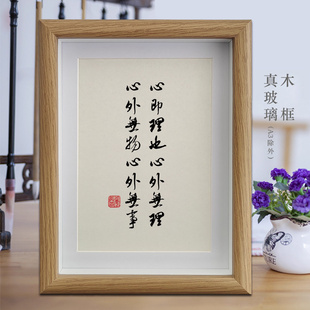 心即理也心外無理
心外無物心外無事
木框
真玻璃
(A3除外)